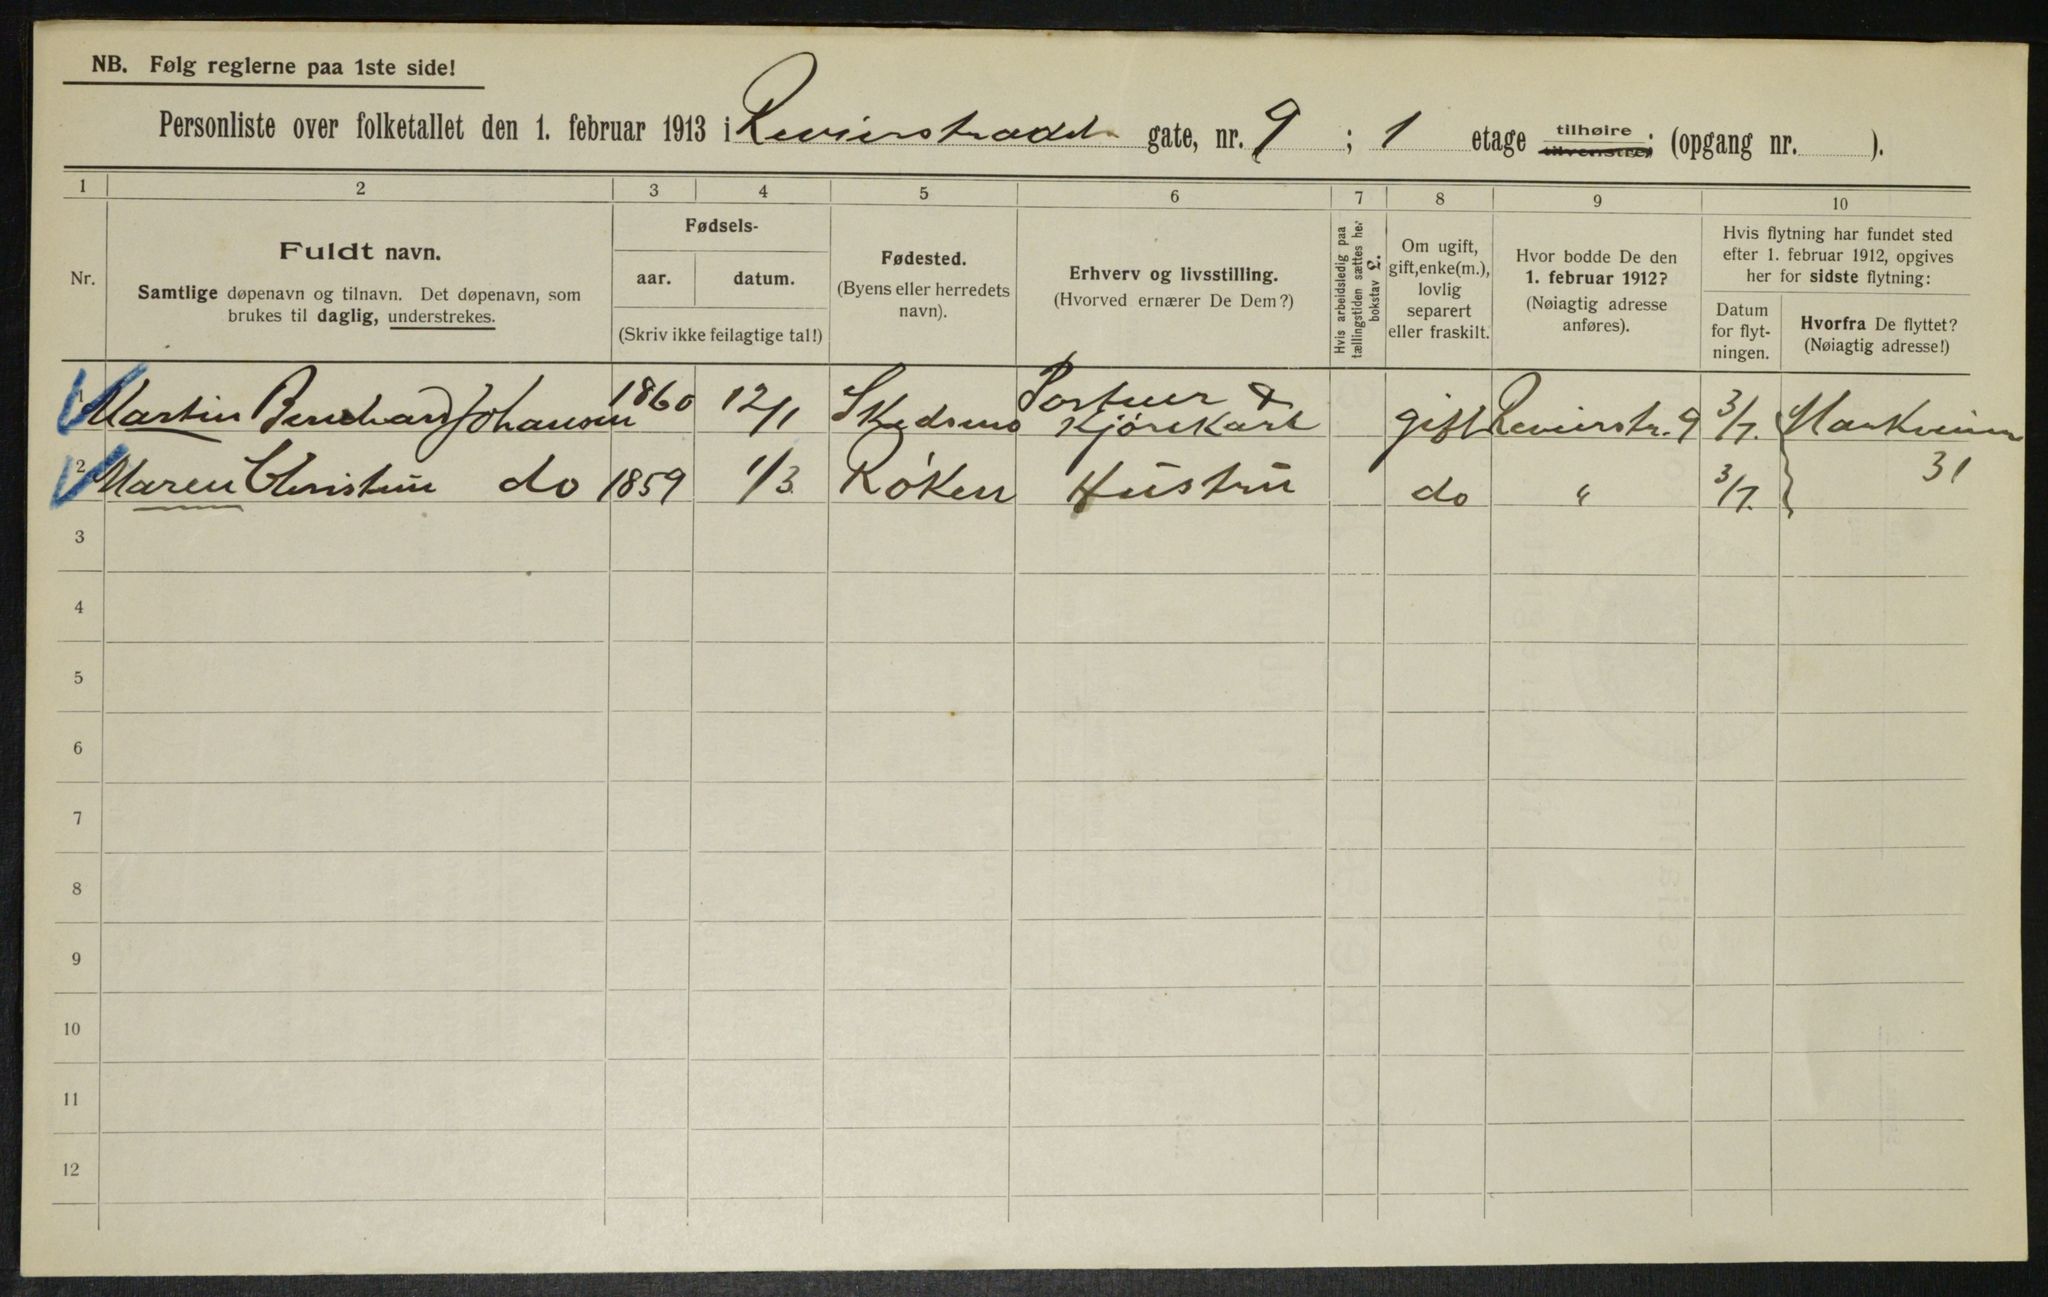 NB. Følg reglerne paa 1ste side!
Personliste over folketallet den 1. februar 1913 i Revierstrædet gate, nr. 9 ; 1 etage tilhøire tilvenstre; (opgang nr. ).
1 2 3 4 5 6 7 8 9 10
Nr.
Fuldt navn.
Samtlige døpenavn og tilnavn. Det døpenavn, som
brukes til daglig, understrekes.
Fødsels-
aar. datum.
(Skriv ikke feilagtige tal!)
Fødested.
(Byens eller herredets
navn).
Erhverv og livsstilling.
(Hvorved ernærer De Dem?)
Hvis arbeidsledig paa
tællingstiden sættes her
bokstav L.
Om ugift,
gift, enke(m.),
lovlig
separert
eller fraskilt.
Hvor bodde De den
1. februar 1912?
(Nøiagtig adresse
anføres).
Hvis flytning har fundet sted
efter 1. februar 1912, opgives
her for sidste flytning:
Datum
for flyt-
ningen.
Hvorfra De flyttet?
(Nøiagtig adresse!)
1 Martin Bernhard Johansen 1860 12/1 Skedsmo Portner & Kjørekarl gift Revierstr. 9 3/7.
2 Maren Christine do 1859 1/3. Røken Hustru do " 3/7. 31
3
4
5
6
7
8
9
10
11
12